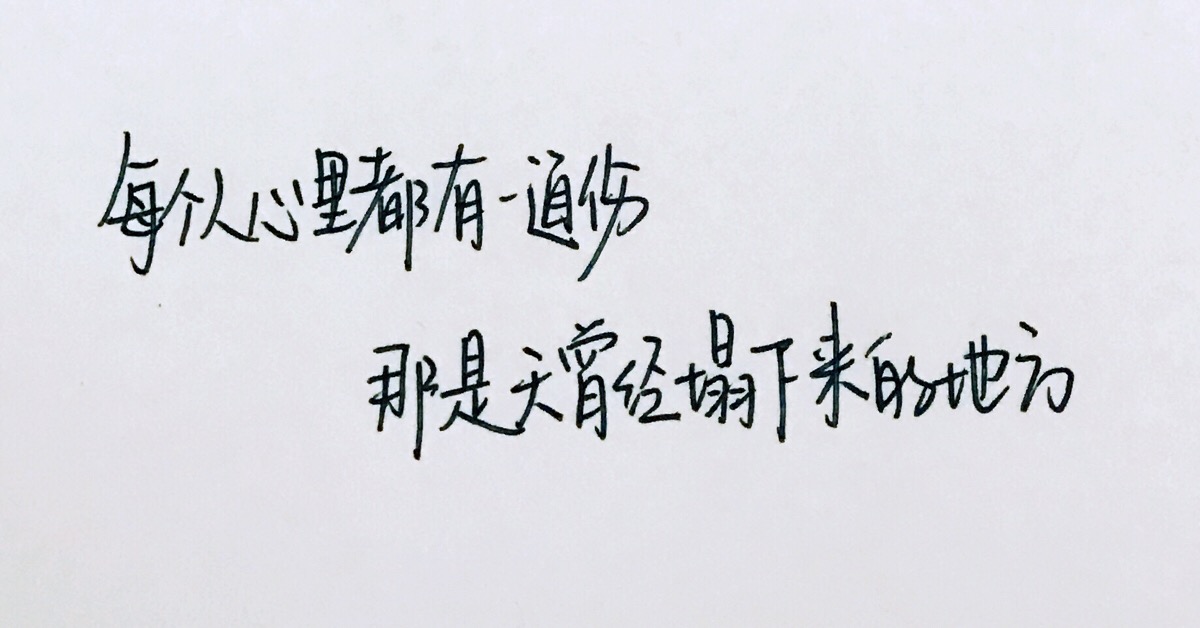 每个人心里都有一道伤
那是天曾经塌下来的地方